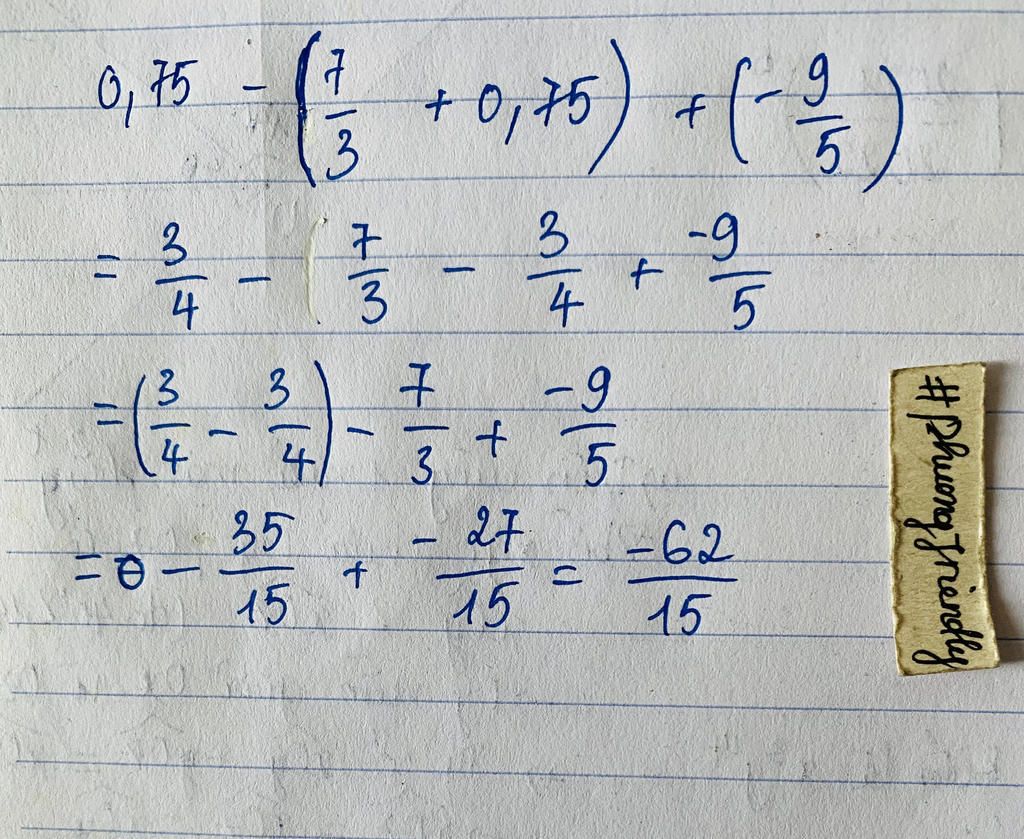 0,75 - (7/3 + 0,75) + (-9/5)
= 3/4 - 7/3 - 3/4 + -9/5
= (3/4 - 3/4) - 7/3 + -9/5
= 0 - 35/15 + -27/15 = -62/15
#PhuongFriendly